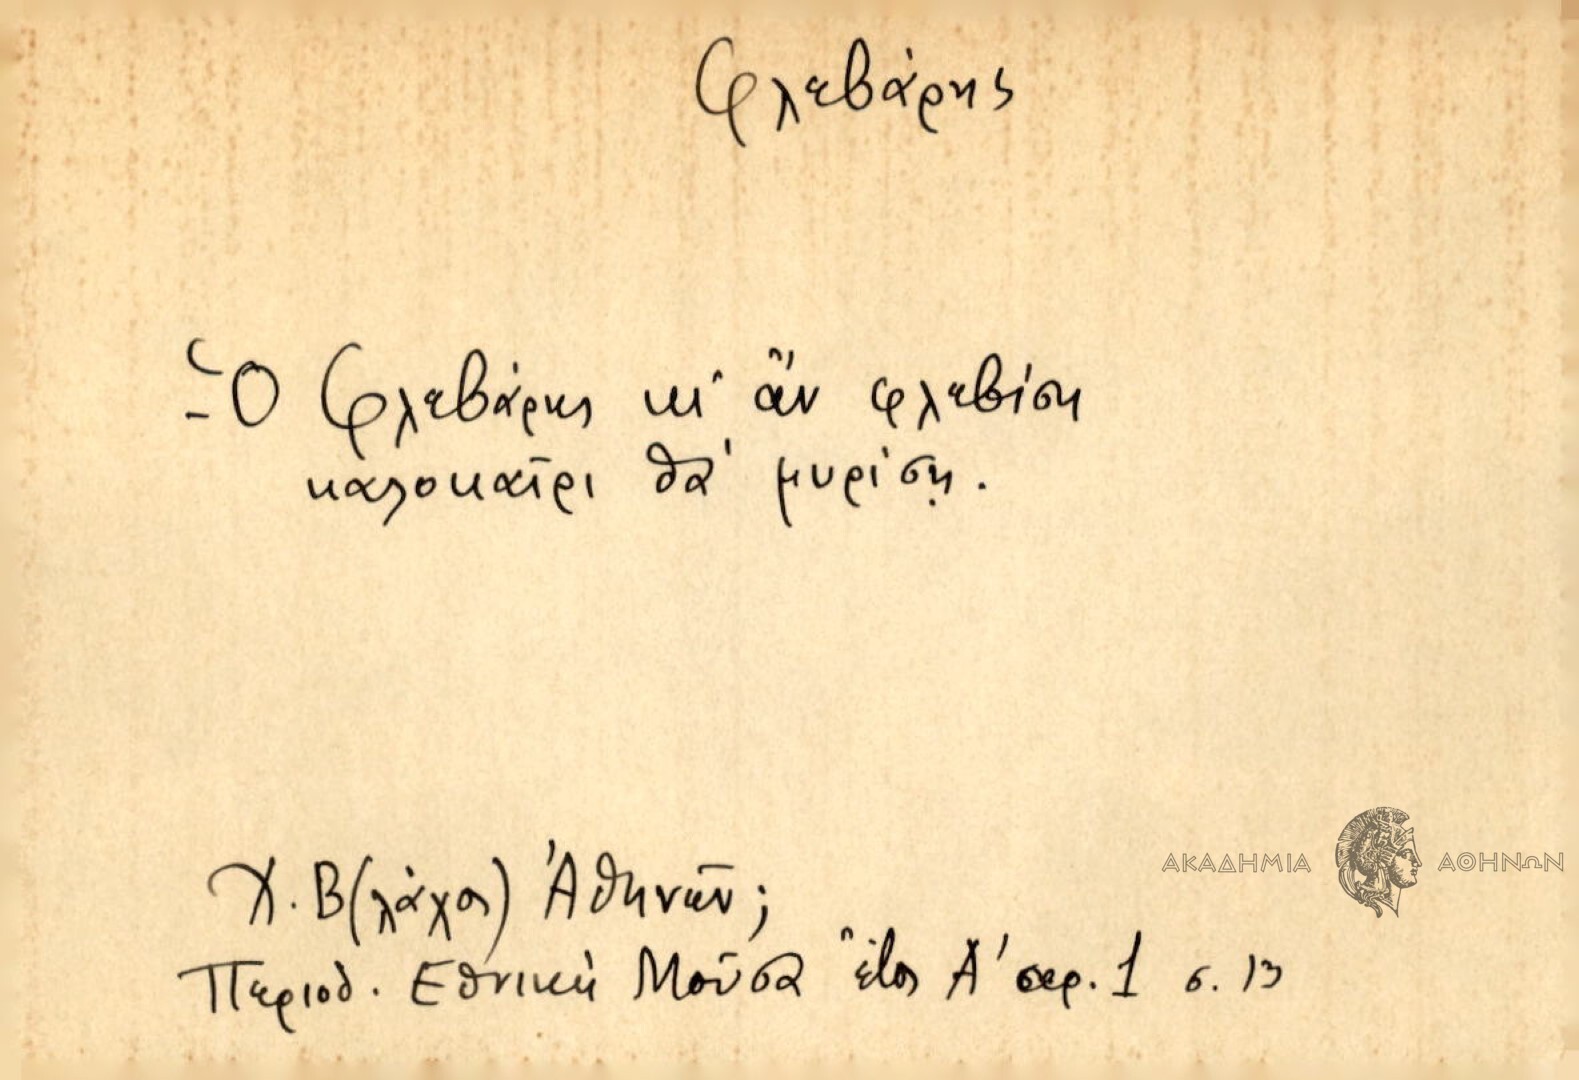 Φλεβάρης
Ὁ Φλεβάρης κι' ἂν φλεβίση
καλοκαῖρι θα' μυρίσῃ.
Χ. Β(λάχος) Ἀθηνῶν;
Περιοδ. Εθνικὴ Μοῦσα ἔτος Α' σερ. 1 σ. 13
ΑΚΑΔΗΜΙΑ ΑΘΗΝΩΝ